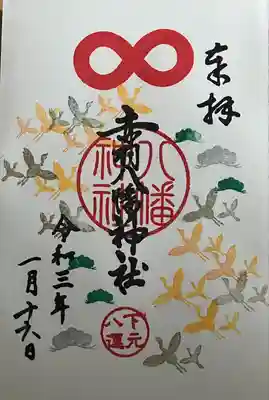 奉拝
赤羽八幡神社
八幡
神社
令和三年
一月十六日
下元
八運